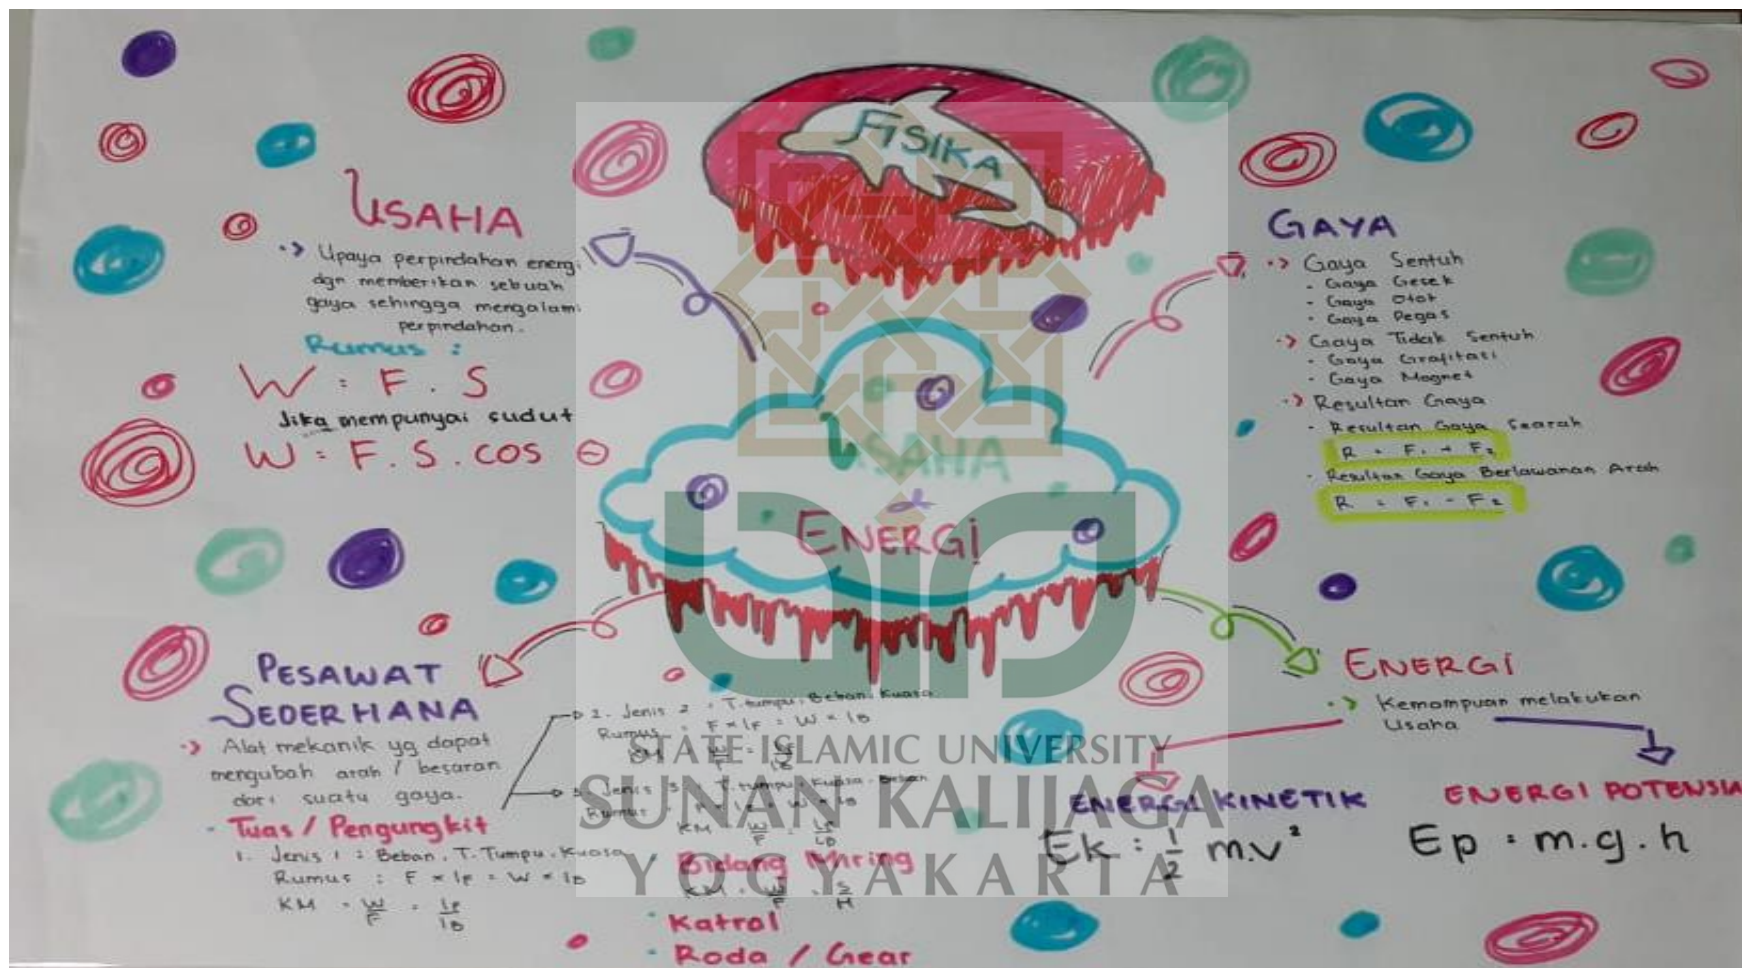 FISIKA
USAHA
Upaya perpindahan energi
dgn memberikan sebuah
gaya sehingga mengalami
perpindahan.
Rumus :
W : F . S
Jika mempunyai sudut
W : F . S . COS θ
GAYA
Gaya Sentuh
- Gaya Gesek
- Gaya Otot
- Gaya Pegas
Gaya Tidak Sentuh
- Gaya Grafitasi
- Gaya Magnet
Resultan Gaya
- Resultan Gaya Searah
R = F₁ + F₂
- Resultan Gaya Berlawanan Arah
R = F₁ - F₂
USAHA
&
ENERGI
PESAWAT
SEDERHANA
Alat mekanik yg dapat
mengubah arah / besaran
dari suatu gaya.
• Tuas / Pengungkit
1. Jenis 1 : Beban . T. Tumpu . Kuasa
Rumus : F × lF = W × lB
KM = W/F = lF/lB
2. Jenis 2 : T. tumpu . Beban . Kuasa
Rumus : F × lF = W × lB
KM = W/F = lF/lB
3. Jenis 3 : T. tumpu . Kuasa . Beban
Rumus
KM = W/F = lF/lB
• Bidang Miring
KM = W/F = S/H
• Katrol
• Roda / Gear
ENERGI
Kemampuan melakukan
Usaha
ENERGI KINETIK
Ek : 1/2 m.v²
ENERGI POTENSIA
Ep : m.g.h
STATE ISLAMIC UNIVERSITY
SUNAN KALIJAGA
YOGYAKARTA